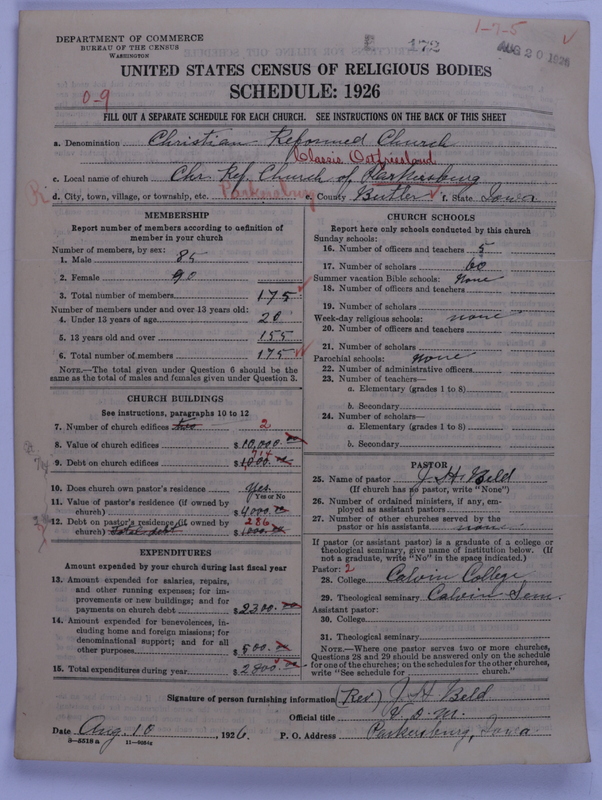 DEPARTMENT OF COMMERCE
BUREAU OF THE CENSUS
WASHINGTON
E 172
1-7-5
AUG 20 1926
UNITED STATES CENSUS OF RELIGIOUS BODIES
SCHEDULE: 1926
0-9
FILL OUT A SEPARATE SCHEDULE FOR EACH CHURCH. SEE INSTRUCTIONS ON THE BACK OF THIS SHEET
a. Denomination Christian Reformed Church
Classis Ostfriesland
c. Local name of church Chr. Ref. Church of Parkersburg
d. City, town, village, or township, etc. Parkersburg e. County Butler f. State Iowa
MEMBERSHIP
Report number of members according to definition of
member in your church
Number of members, by sex:
1. Male 85
2. Female 90
3. Total number of members 175
Number of members under and over 13 years old:
4. Under 13 years of age 20
5. 13 years old and over 155
6. Total number of members 175
NOTE.—The total given under Question 6 should be the
same as the total of males and females given under Question 3.
CHURCH BUILDINGS
See instructions, paragraphs 10 to 12
7. Number of church edifices two 2
8. Value of church edifices $ 10,000.00
714
9. Debt on church edifices $ 1000.00
10. Does church own pastor's residence Yes.
Yes or No
11. Value of pastor's residence (if owned by
church) $ 4000.00
12. Debt on pastor's residence (if owned by 286
church) Total debt $ 1000.00
EXPENDITURES
Amount expended by your church during last fiscal year
13. Amount expended for salaries, repairs,
and other running expenses; for im-
provements or new buildings; and for
payments on church debt $ 2300.00
14. Amount expended for benevolences, in-
cluding home and foreign missions; for
denominational support; and for all
other purposes $ 500.00
15. Total expenditures during year $ 2800.00
CHURCH SCHOOLS
Report here only schools conducted by this church
Sunday schools:
16. Number of officers and teachers 5
17. Number of scholars 60
Summer vacation Bible schools: None
18. Number of officers and teachers
19. Number of scholars
Week-day religious schools: none
20. Number of officers and teachers
21. Number of scholars
Parochial schools: None
22. Number of administrative officers
23. Number of teachers—
a. Elementary (grades 1 to 8)
b. Secondary
24. Number of scholars—
a. Elementary (grades 1 to 8)
b. Secondary
PASTOR
25. Name of pastor J. H. Beld
(If church has no pastor, write "None")
26. Number of ordained ministers, if any, em-
ployed as assistant pastors
27. Number of other churches served by the
pastor or his assistants none
If pastor (or assistant pastor) is a graduate of a college or
theological seminary, give name of institution below. (If
not a graduate, write "No" in the space indicated.)
Pastor: 2
28. College Calvin College
29. Theological seminary Calvin Sem.
Assistant pastor:
30. College
31. Theological seminary
NOTE.—Where one pastor serves two or more churches,
Questions 28 and 29 should be answered only on the schedule
for one of the churches; on the schedules for the other churches,
write "See schedule for church."
Signature of person furnishing information (Rev) J. H. Beld
Official title V. D. M.
Date Aug. 10, 1926. P. O. Address Parkersburg, Iowa.